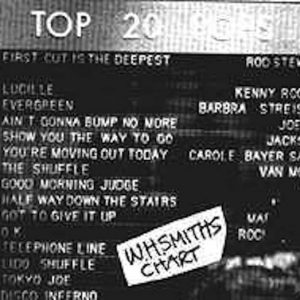 TOP 20 POPS
FIRST CUT IS THE DEEPEST ROD STEW
LUCILLE KENNY ROG
EVERGREEN BARBRA STREIS
AIN'T GONNA BUMP NO MORE JOE
SHOW YOU THE WAY TO GO JACKS
YOU'RE MOVING OUT TODAY CAROLE BAYER SA
THE SHUFFLE VAN MC
GOOD MORNING JUDGE
HALF WAY DOWN THE STAIRS
GOT TO GIVE IT UP MAR
O.K. ROCK
TELEPHONE LINE
LIDO SHUFFLE
TOKYO JOE
DISCO INFERNO
W.H.SMITHS
CHART